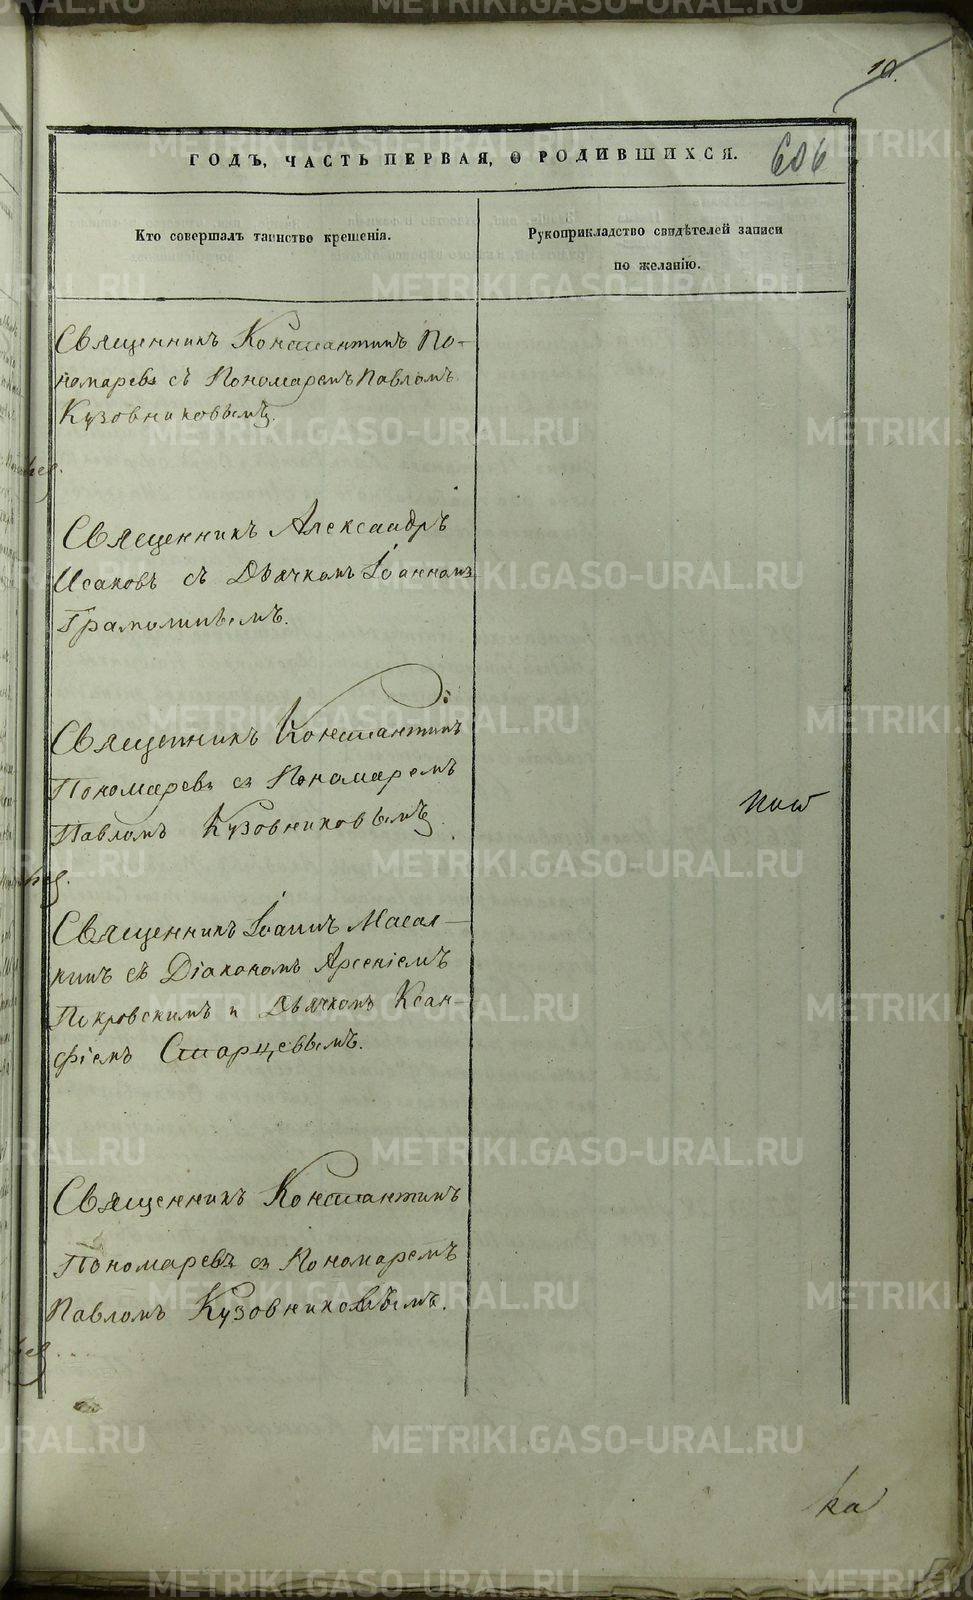 10.
ГОДЪ, ЧАСТЬ ПЕРВАЯ, О РОДИВШИХСЯ.
606
Кто совершалъ таинство крещенія.
Рукоприкладство свидѣтелей записи
по желанію.
Священникъ Константинъ По-
номаревъ съ Пономаремъ Павломъ
Кузовниковымъ.
Священникъ Александръ
Исаковъ съ Дьячкомъ Іоанномъ
Священникъ Константинъ
Пономаревъ съ Пономаремъ
Павломъ Кузовниковымъ.
Священникъ Іоаннъ Масал-
кинъ съ Діакономъ Арсеніемъ
Покровскимъ и Дьячкомъ Ксан-
фіемъ Старцевымъ.
Священникъ Константинъ
Пономаревъ съ Пономаремъ
Павломъ Кузовниковымъ.
ка
METRIKI.GASO-URAL.RU